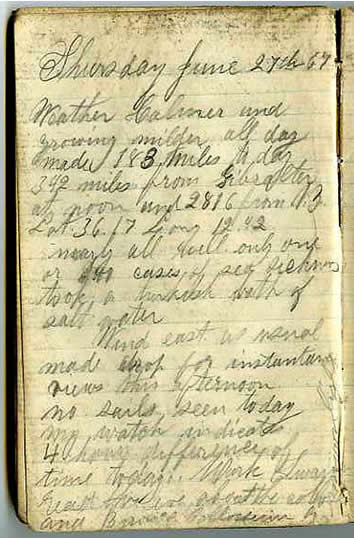 Thursday June 27th 67
Weather Calmer and
growing milder all day
made 183 miles to day
392 miles from Gibralter
at noon and 2816 from N.J.
Lat 36.17 Long 12.42
nearly all well only one
or two cases of sea sickness
took a turkish bath of
salt water
Wind east as usual
made drop for instantan
views this afternoon
no sails seen today
my watch indicats
4 hours difference of
time today. Mark
and